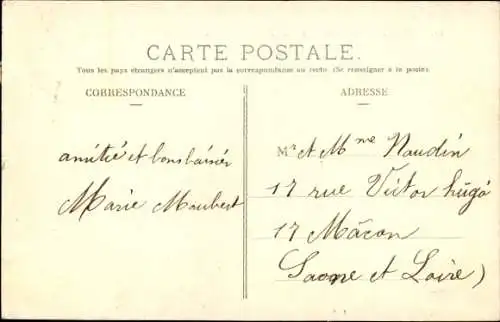 CARTE POSTALE.
Tous les pays étrangers n'acceptent pas la correspondance au recto. (Se renseigner à la poste).
CORRESPONDANCE
amitié et bons baisers
Marie Maubert
ADRESSE
Mr et Mme Naudin
17 rue Victor hugo
17 Mâcon
Saone et Loire)